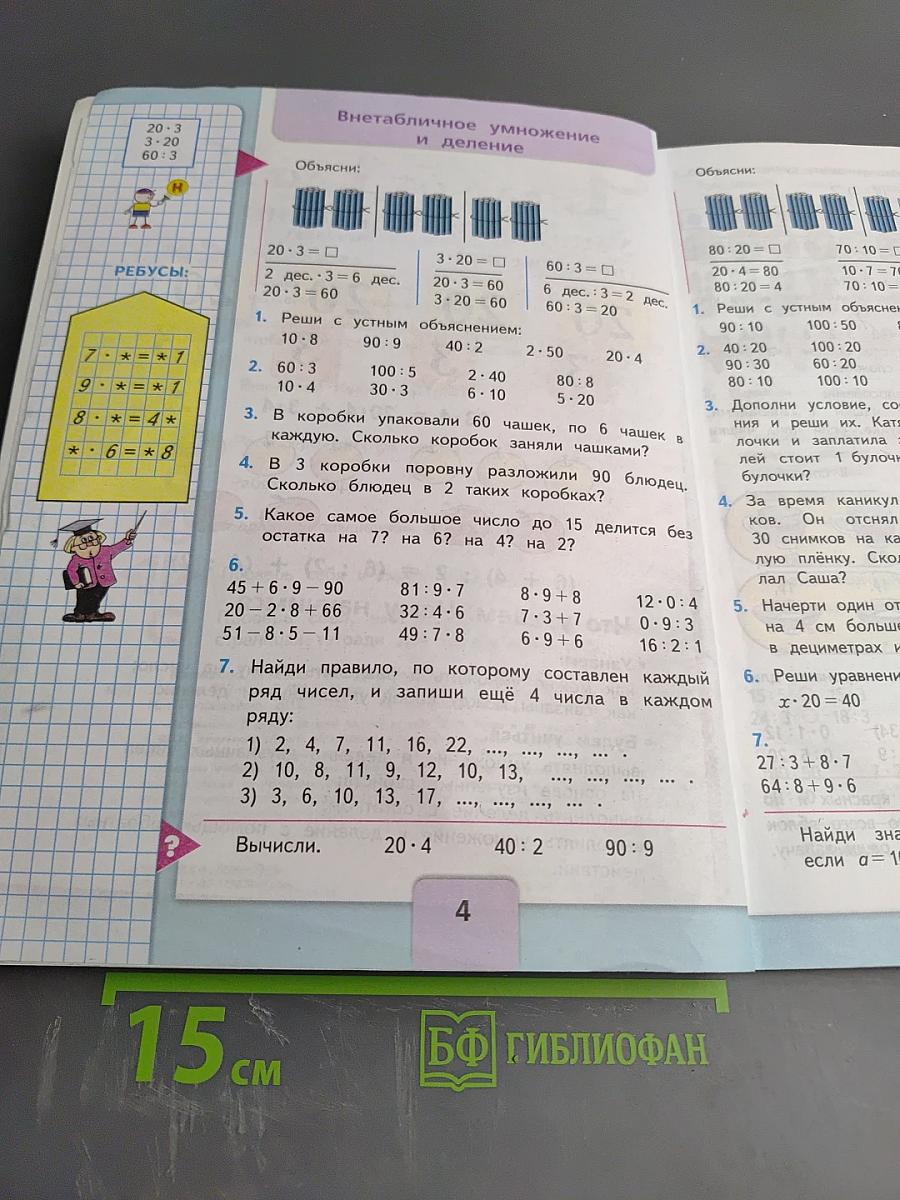 20 · 3
3 · 20
60 : 3
Н
РЕБУСЫ:
7 · * = * 1
9 · * = * 1
8 · * = 4 *
* · 6 = * 8
Внетабличное умножение
и деление
Объясни:
20 · 3 = □
2 дес. · 3 = 6 дес.
20 · 3 = 60
3 · 20 = □
20 · 3 = 60
3 · 20 = 60
60 : 3 = □
6 дес. : 3 = 2 дес.
60 : 3 = 20
1. Реши с устным объяснением:
10 · 8 90 : 9 40 : 2 2 · 50 20 · 4
2. 60 : 3 100 : 5 2 · 40 80 : 8
10 · 4 30 · 3 6 · 10 5 · 20
3. В коробки упаковали 60 чашек, по 6 чашек в
каждую. Сколько коробок заняли чашками?
4. В 3 коробки поровну разложили 90 блюдец.
Сколько блюдец в 2 таких коробках?
5. Какое самое большое число до 15 делится без
остатка на 7? на 6? на 4? на 2?
6.
45 + 6 · 9 − 90 81 : 9 · 7 8 · 9 + 8 12 · 0 : 4
20 − 2 · 8 + 66 32 : 4 · 6 7 · 3 + 7 0 · 9 : 3
51 − 8 · 5 − 11 49 : 7 · 8 6 · 9 + 6 16 : 2 : 1
7. Найди правило, по которому составлен каждый
ряд чисел, и запиши ещё 4 числа в каждом
ряду:
1) 2, 4, 7, 11, 16, 22, ..., ..., ..., ... .
2) 10, 8, 11, 9, 12, 10, 13, ..., ..., ..., ... .
3) 3, 6, 10, 13, 17, ..., ..., ..., ... .
?
Вычисли. 20 · 4 40 : 2 90 : 9
4
Объясни:
80 : 20 = □ 70 : 10 =
20 · 4 = 80 10 · 7 =
80 : 20 = 4 70 : 10 =
1. Реши с устным
90 : 10 100 : 50
2. 40 : 20 100 : 20
90 : 30 60 : 20
80 : 10 100 : 10
3. Дополни условие,
ния и реши их.
лочки и заплатила
лей стоит 1
булочки?
4. За время
ков. Он
30 снимков на
лую плёнку.
лал Саша?
5. Начерти один
на 4 см
в дециметрах
6. Реши
x · 20 = 40
7.
27 : 3 + 8 · 7
64 : 8 + 9 · 6
Найди
если a =
15 см
БФ ГИБЛИОФАН